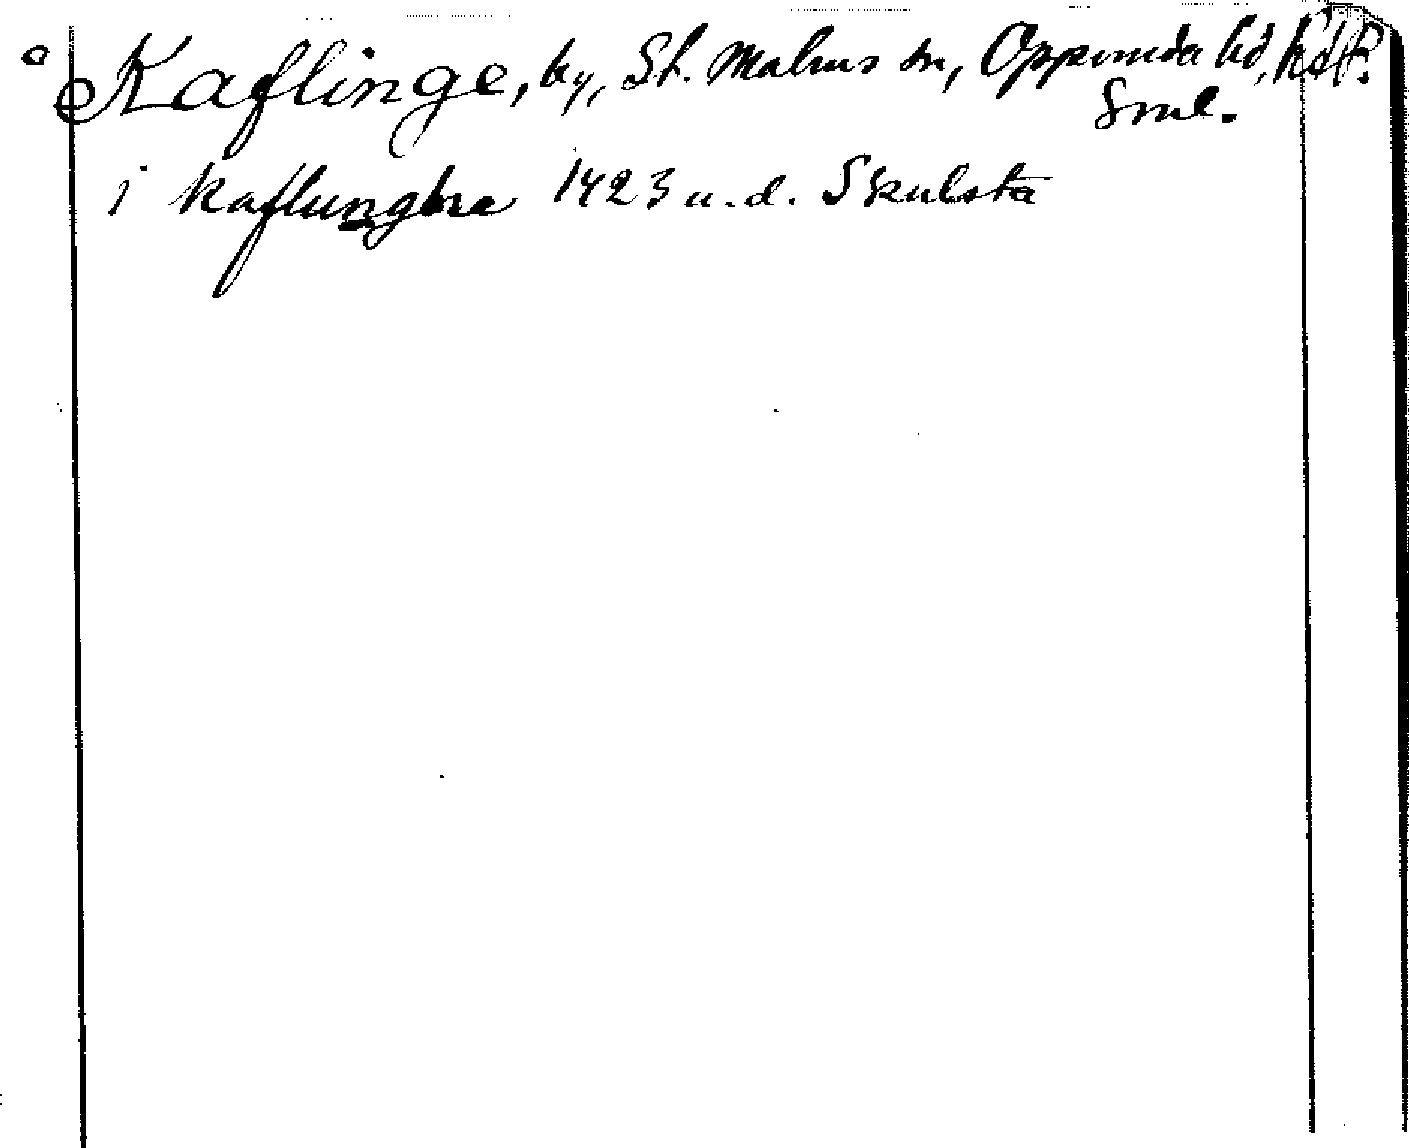 Kaflinge, by, St. Malms sn, Oppunda hd,
Sml.
i kaflungbra 1423 u.d. Skulsta